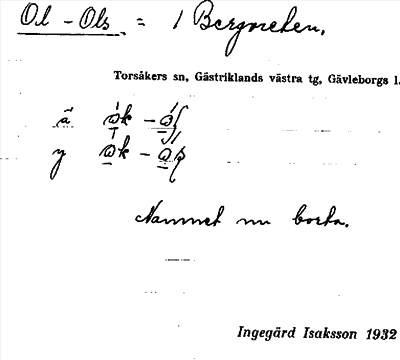 Ol - Ols = / Bergveken.
Torsåkers sn, Gästriklands västra tg, Gävleborgs l.
ä
y
Namnet nu borta.
Ingegärd Isaksson 1932